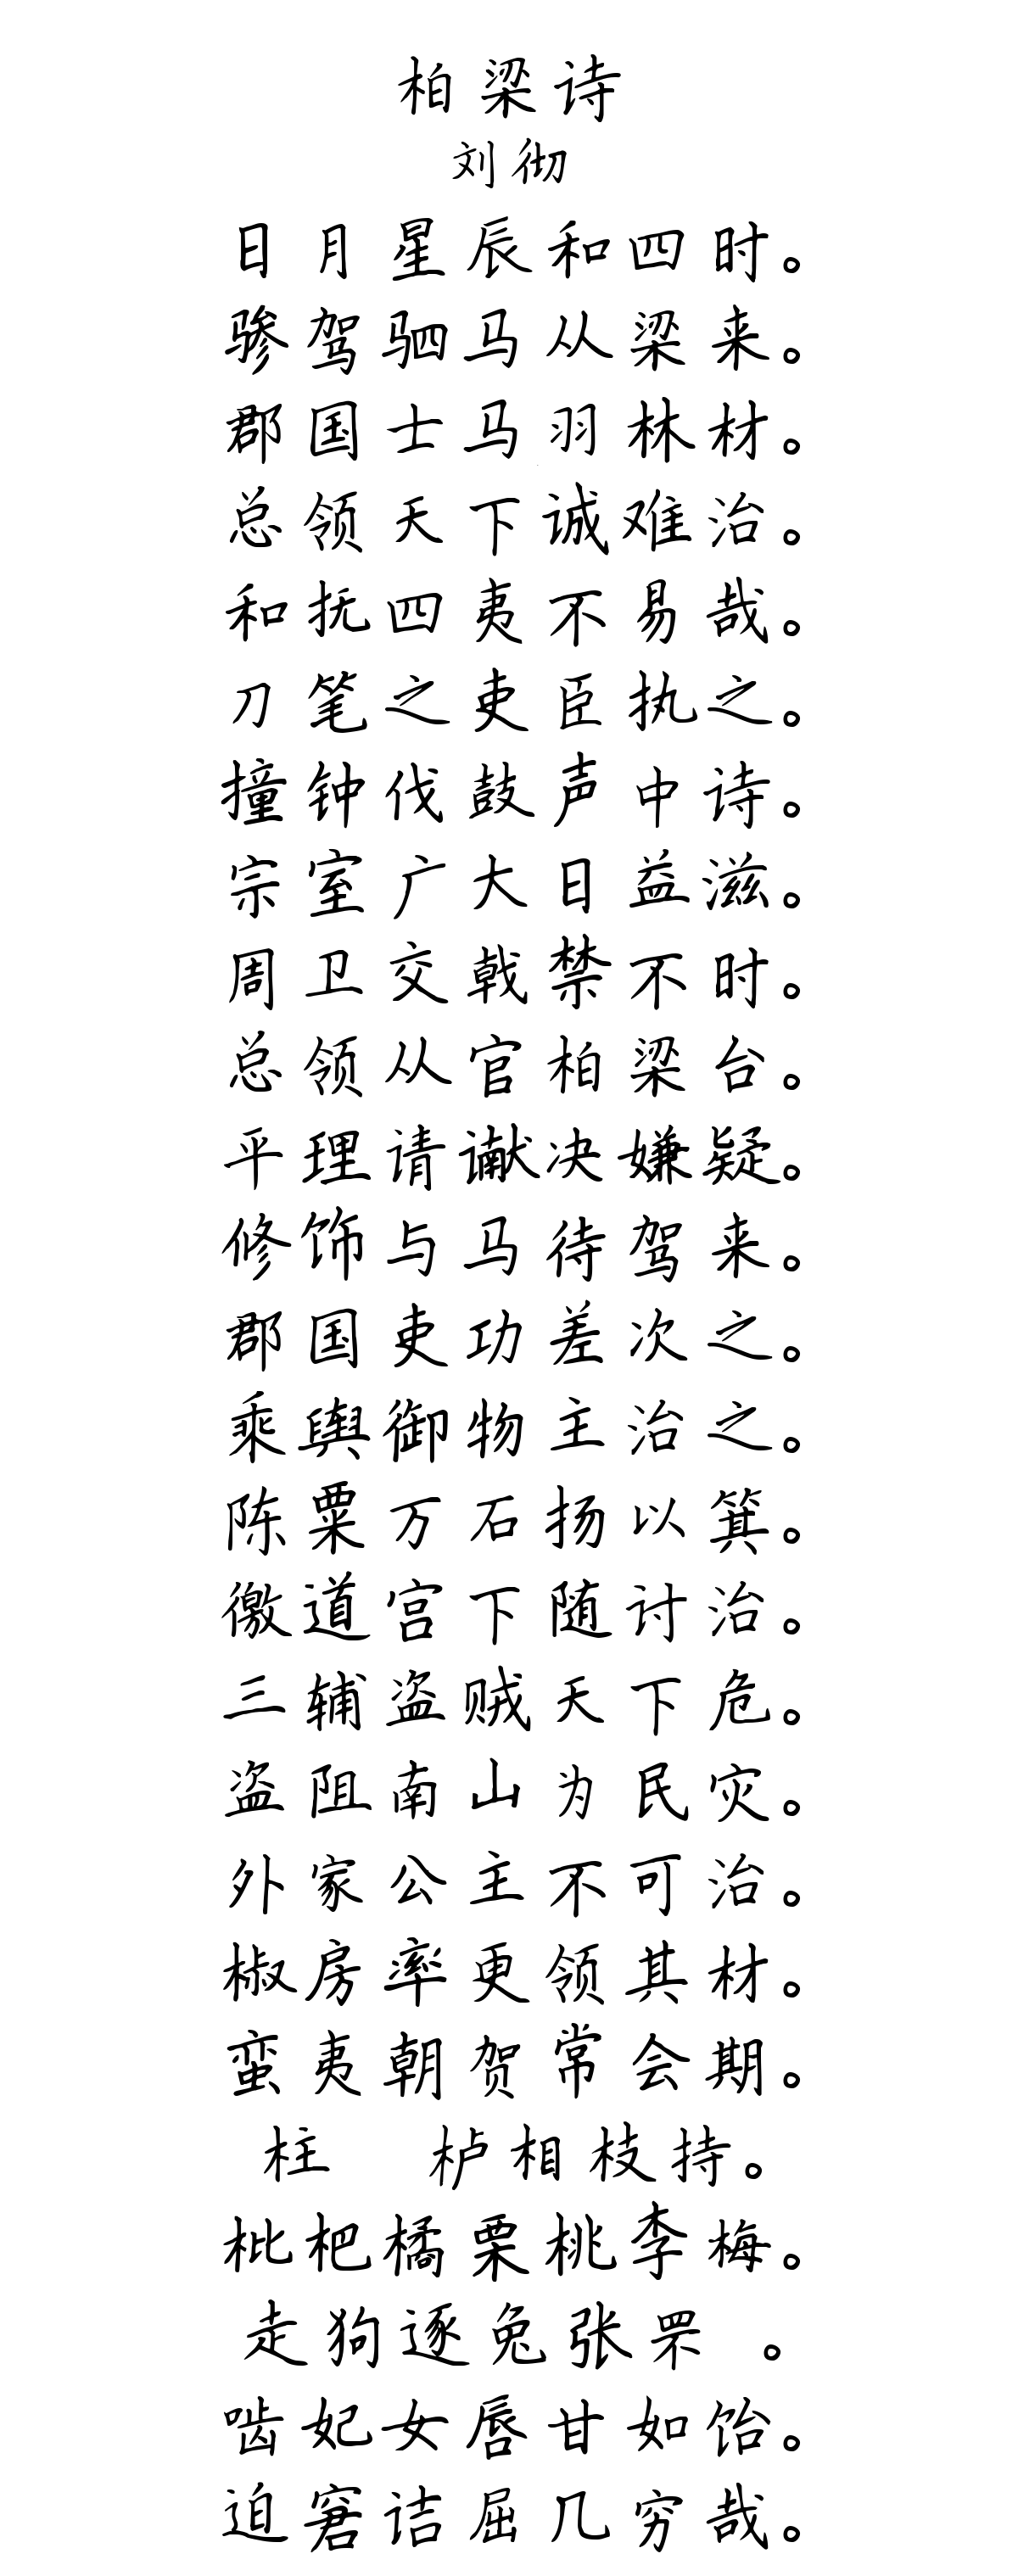 柏梁诗
刘彻
日月星辰和四时。
骖驾驷马从梁来。
郡国士马羽林材。
总领天下诚难治。
和抚四夷不易哉。
刀笔之吏臣执之。
撞钟伐鼓声中诗。
宗室广大日益滋。
周卫交戟禁不时。
总领从官柏梁台。
平理请谳决嫌疑。
修饰与马待驾来。
郡国吏功差次之。
乘舆御物主治之。
陈粟万石扬以箕。
徼道宫下随讨治。
三辅盗贼天下危。
盗阻南山为民灾。
外家公主不可治。
椒房率更领其材。
蛮夷朝贺常会期。
柱 栌相枝持。
枇杷橘栗桃李梅。
走狗逐兔张罘 。
啮妃女唇甘如饴。
迫窘诘屈几穷哉。